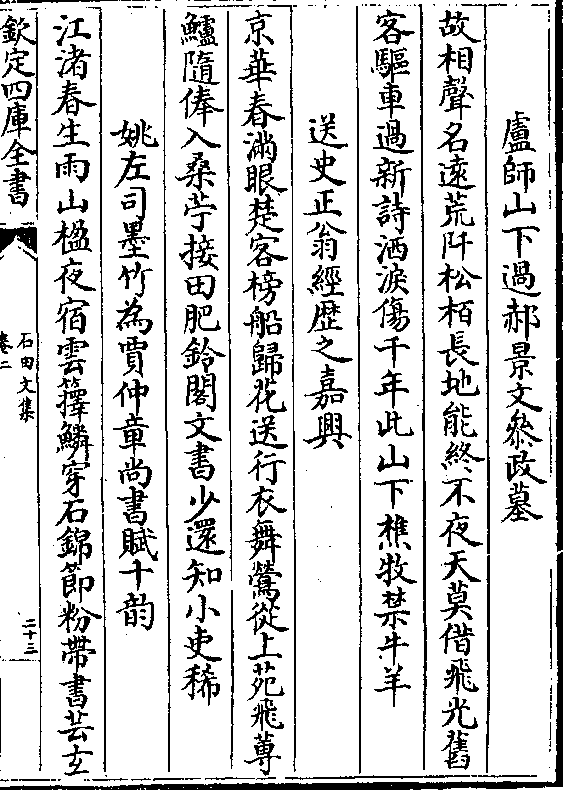 盧師山下過郝景文叅政墓
故相聲名遠荒阡松栢長地能終不夜天莫借飛光舊
客驅車過新詩洒淚傷千年此山下樵牧禁牛羊
送史正翁經歴之嘉興
京華春滿眼楚客榜船歸花送行衣舞鶯從上苑飛蓴
鱸隨俸入桑苧接田肥鈴閣文書少還知小吏稀
姚左司墨竹為賈仲章尚書賦十韵
江渚春生雨山楹夜宿雲籜鱗穿石錦節粉帶書芸玄
欽定四庫全書
石田文集
卷二
二十三